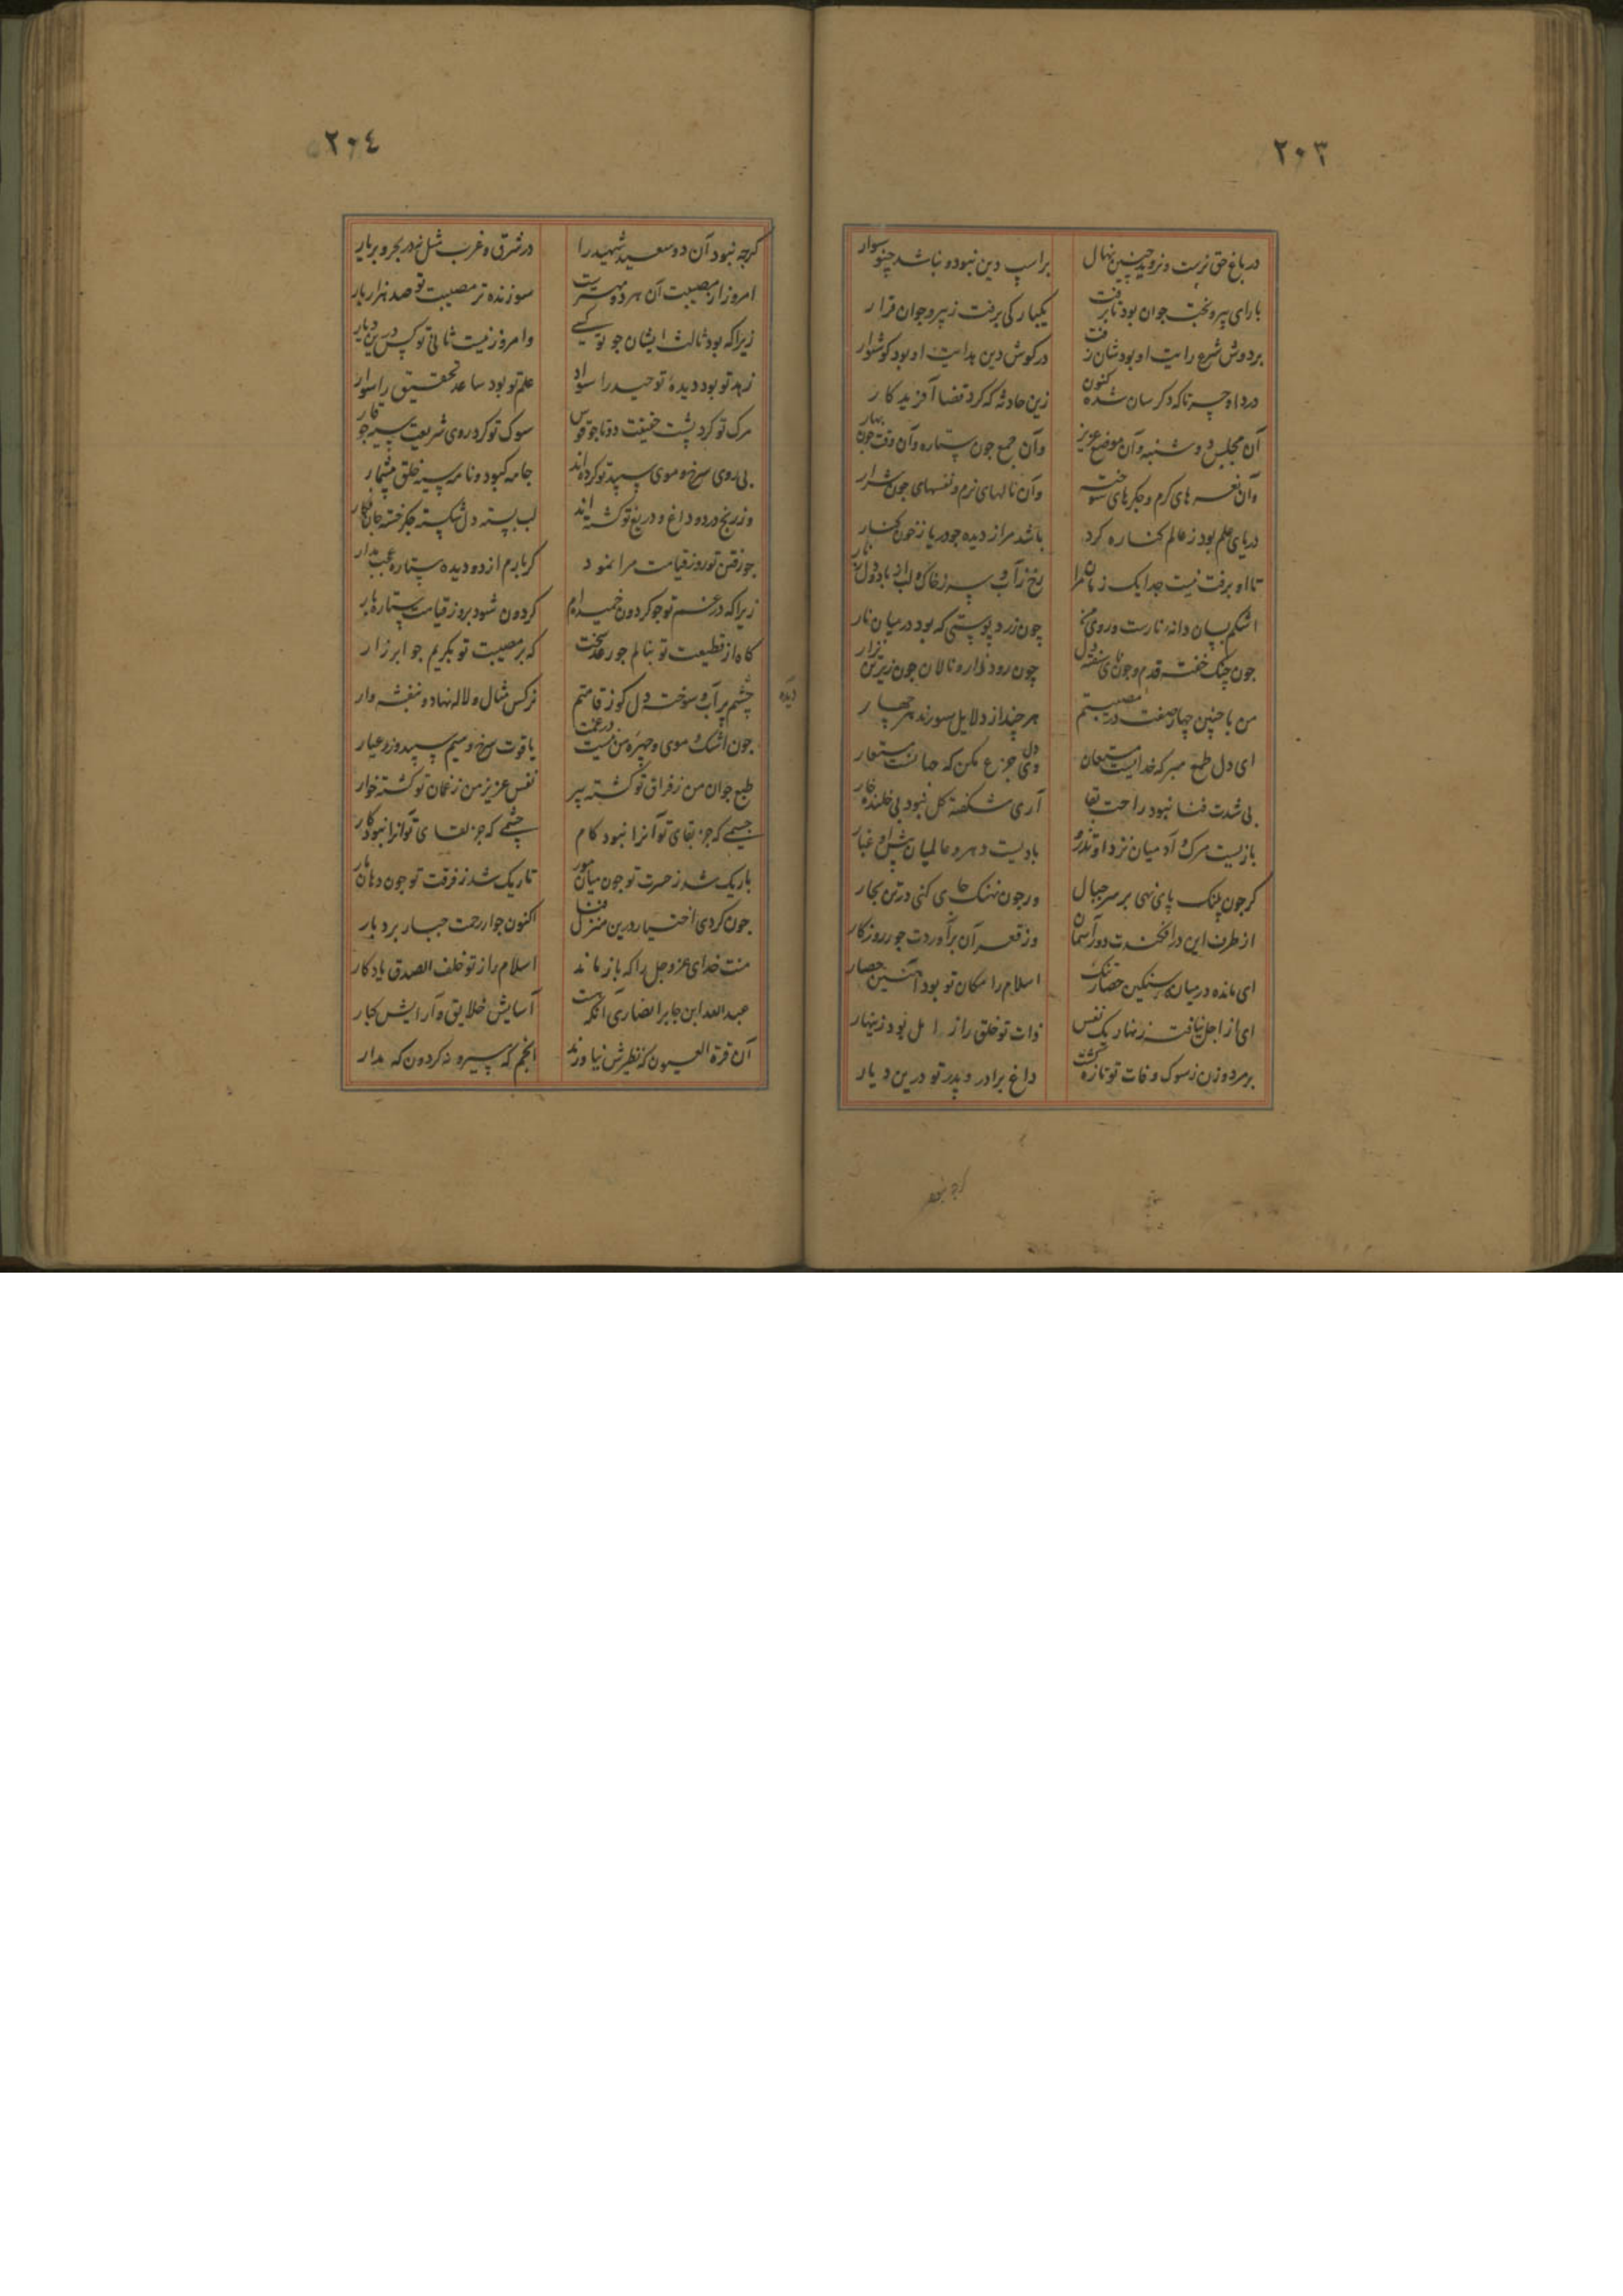 ٢٠٣
در باغ حق نرست و نروید چنین نهال براسپ دین نبود و نباشد چنو سوار
با رای پیر و بخت جوان بود تا برفت یکبارکی برفت ز پیر و جوان قرار
بر دوش شرع رایت او بود شان رفت در کوش دین هدایت او بود کوشوار
دردا و حسرتا که دکرسان شده کنون زین حادثه که کرد قضا آفریدکار
آن مجلس دوشنبه و آن موضع عزیز وآن جمع جون ستاره وآن وقت جون بهار
وآن نعره های کرم و جکرهای سوخته وآن نالهای نرم و نفسهای جون شرار
دریای علم بود ز عالم کناره کرد باشد مرا ز دیده جو دریا ز خون کنار
تا او برفت نیست جدا یک زمان مرا رخ ز آب و سر ز خاک و لب از باد و دل ز نار
اشکم بسان دانه نارست و روی من چون زرد پوستی که بود در میان نار
جون چنک خفته قدم و جون نای سفته دل چون رود نزاره نالان جون زیر تن نزار
من با چنین چهار صفت در مصیبتم هر چند از دلایل سورند هر چهار
ای دل طمع مبر که خدایست مستعان وی دل جزع مکن که حیاتست مستعار
بی شدت فنا نبود راحت بقا آری شکفته کل نبود بی خلنده خار
بازیست مرک و آدمیان نزد او تذرو بادیست دهر و عالمیان پیش او غبار
کر جون پلنک پای نهی بر سر جبال ور جون نهنک جای کنی در تن بحار
از طرف این درافکندت دور آسمان وز قعر آن برآوردت جور روزکار
ای مانده در میانه سنکین حصار تنک اسلام را مکان تو بود آهنین حصار
ای از اجل نیافته زنهار یک نفس ذات تو خلق را ز امل بود زینهار
بر مرد و زن ز سوک وفات تو تازه کشت داغ برادر و پدر تو درین دیار
٢٠٤
کرچه نبود آن دو سعید شهید را در شرق و غرب مثل نه در بحر و بر یار
امروز از مصیبت آن هر دو مهترت سوزنده تر مصیبت تو صد هزار بار
زیرا که بود ثالث ایشان جو تو کسی وامروز نیست ثانی تو کس درین دیار
زهد تو بود دیدۀ توحید را سواد علم تو بود ساعد تحقیق را سوار
مرک تو کرد پشت حقیقت دوتا جو قوس سوک تو کرد روی شریعت سیه جو قار
بی روی سرخ و موی سپید تو کرده اند جامه کبود و نامه سیه خلق بیشمار
وز رنج درد و داغ و دریغ تو کشته اند لب بسته دل شکسته جکر خسته جان فکار
جون رفتن تو روز قیامت مرا نمود کر بارم از دو دیده ستاره عجب مدار
زیرا که در غم تو جو کردون خمیده ام کردون شود بروز قیامت ستاره بار
کاه از قطیعت تو بنالم جو رعد سخت که بر مصیبت تو بکریم جو ابر زار
چشم پر آب و سوخته دل کوز قامتم نرکس مثال و لاله نهاد و بنفشه وار
دیده
جون اشک و موی و چهرۀ من نیست در غمت یاقوت سرخ و سیم سپید و زر عیار
طبع جوان من ز فراق تو کشته پیر نفس عزیز من ز غمان تو کشته خوار
جسمی که جز بقای تو آنرا نبود کام چشمی که جز لقای تو آنرا نبود کار
باریک شد ز حسرت تو جون میان مور تاریک شد ز فرقت تو جون دهان مار
جون کردی اختیار درین منزل فنا اکنون جوار رحمت جبار بردبار
منت خدای عز و جل را که باز ماند اسلام را ز تو خلف الصدق یادکار
عبدالله ابن جابر انصاری آنکه هست آسایش خلایق و آرایش کبار
آن قرة العیون که نظیرش نیاورند انجم که مسیر و نه کردون که مدار